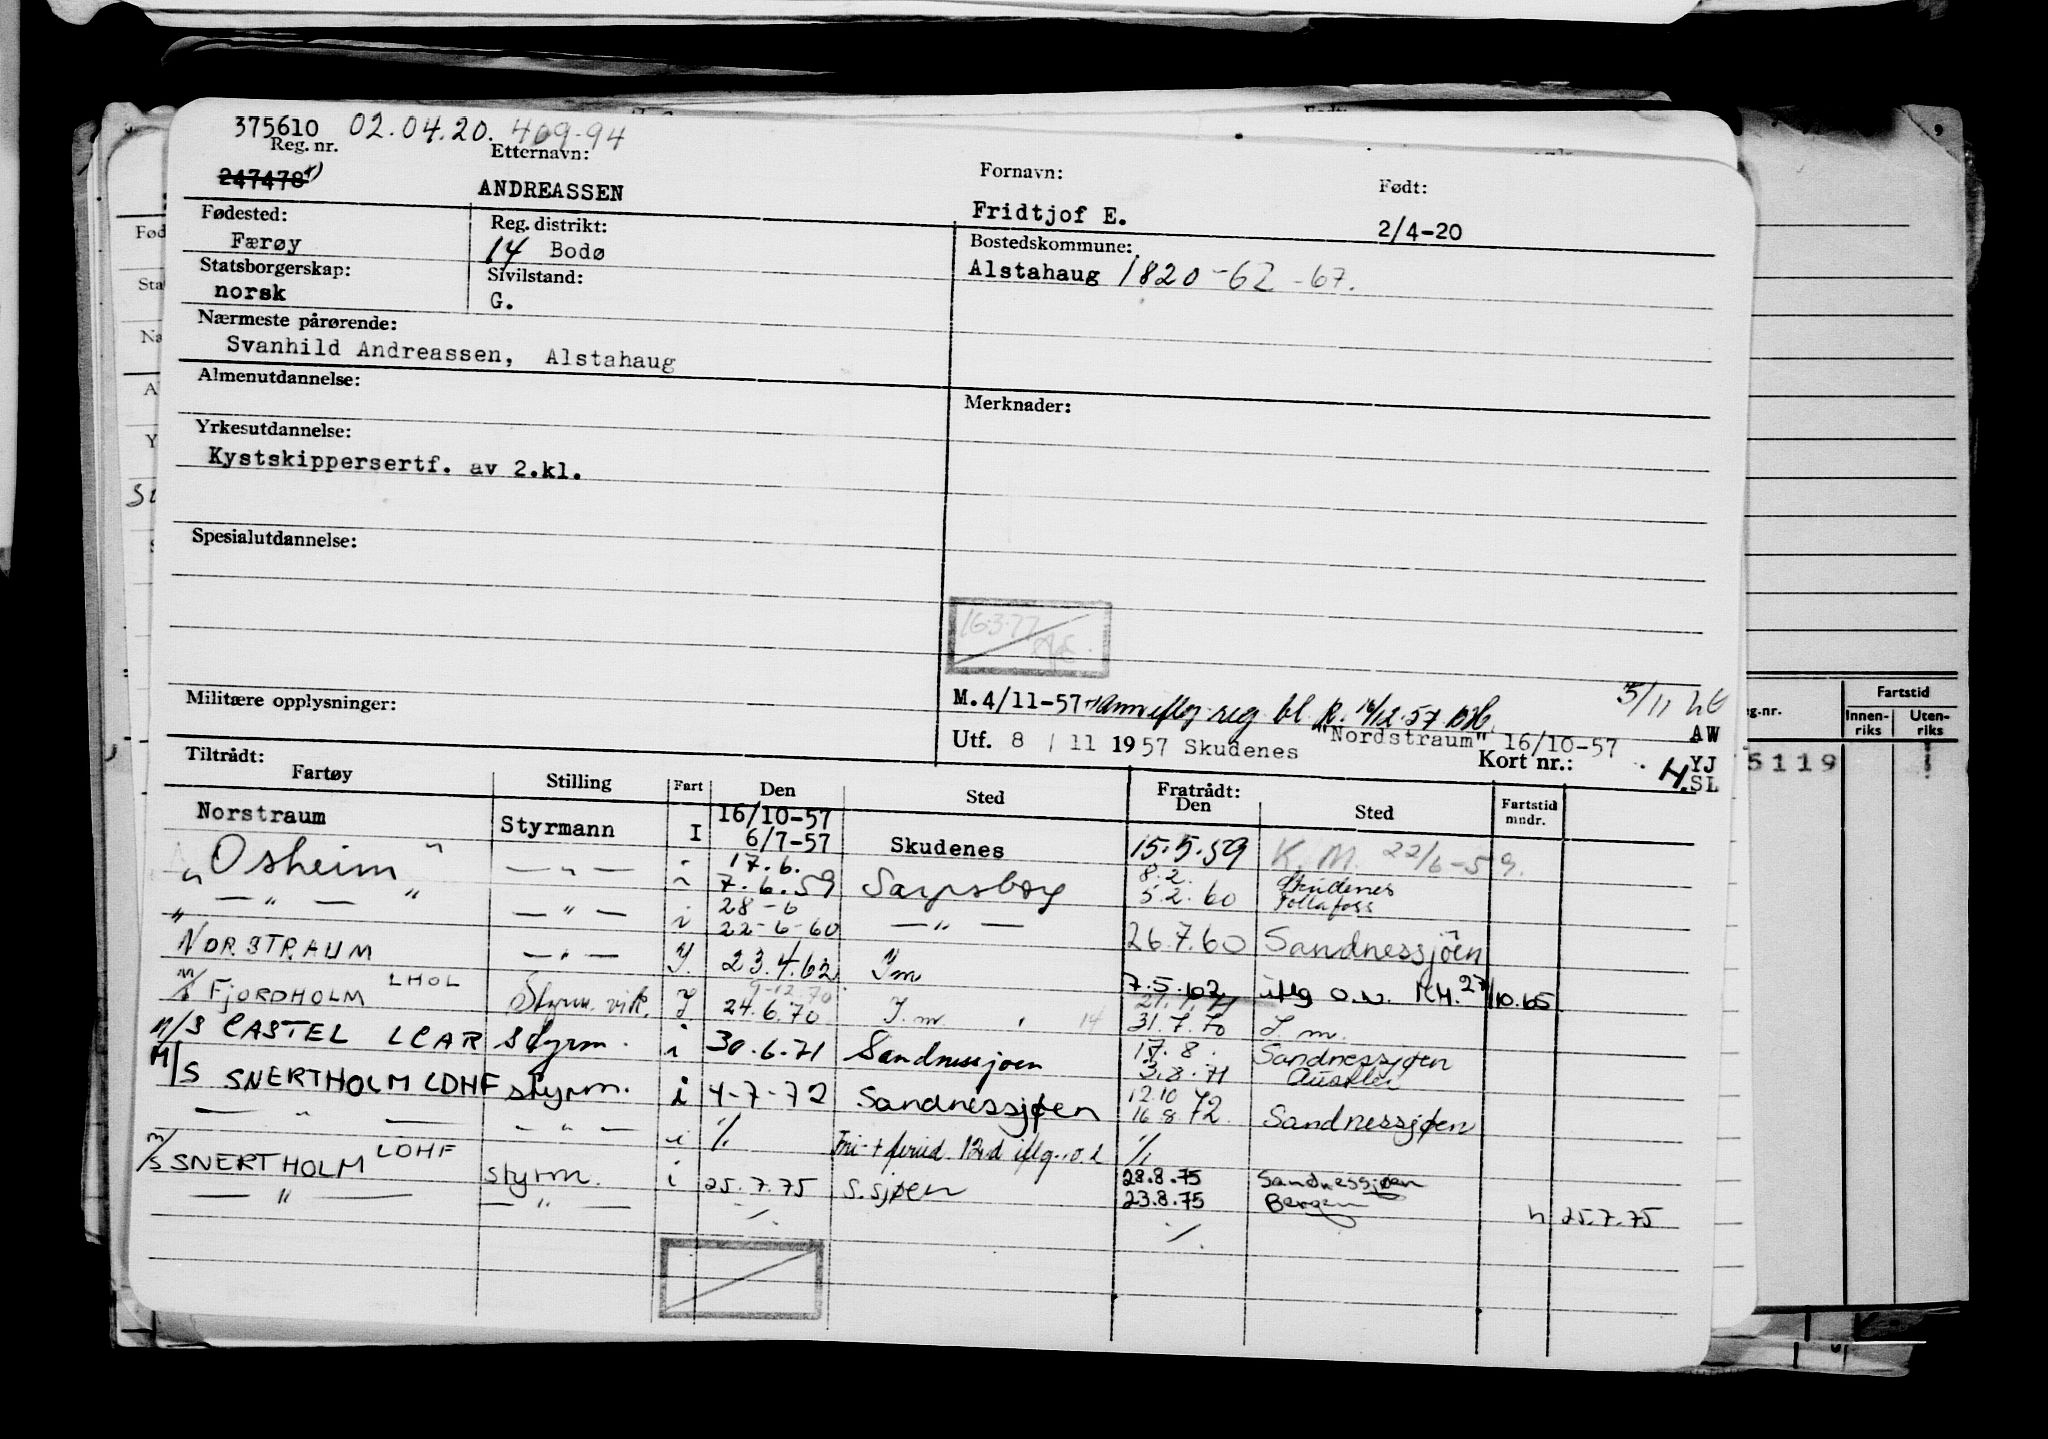 375610 02.04.20. 409-94
Reg. nr. Etternavn: Fornavn: Født:
247478 x) ANDREASSEN Fridtjof E. 2/4-20
Fødested: Reg. distrikt: Bostedskommune:
Færøy 14 Bodø Alstahaug 1820-62-67.
Statsborgerskap: Sivilstand:
norsk G.
Nærmeste pårørende:
Svanhild Andreassen, Alstahaug
Almenutdannelse: Merknader:
Yrkesutdannelse:
Kystskippersertf. av 2.kl.
Spesialutdannelse:
16.3.77
Militære opplysninger: M.4/11-57 reg. bl. R. 16/12-57 5/11
"Nordstraum" 16/10-57 AW
Utf. 8 / 11 1957 Skudenes Kort nr.: YJ
H. SL
Tiltrådt: Fratrådt:
Fartøy Stilling Fart Den Sted Den Sted Fartstid mndr.
Norstraum Styrmann I 16/10-57 6/7-57 Skudenes 15.5.59 K.M. 22/6-59.
"Osheim" — " — i 17.6. 7.6.59 Sarpsborg 8.2. 5.2.60 Skudenes Tollafoss
" — " — " — " — i 28-6 22-6-60 — " — 26.7.60 Sandnessjöen
"NORSTRAUM — " — I. 23.4.62 I m 7.5.62 iflg o.v. KM. 27/10.65
M/S FJORDHOLM LHOL Styrm. vik. I 9-12.70 24.6.70 I.m. 14 31.7.70 I m.
M/S CASTEL LCAR Styrm. i 30.6.71 Sandnessjoen 17.8. 3.8.71 Sandnessjøen
M/S SNERTHOLM LDHF styrm. i 4-7-72 Sandnessjøen 12.10 16.8.72. Sandnessjøen
— " — — " — i % Fri + feried. 12d iflg. o.l %
M/S SNERTHOLM LDHF styrm. i 25.7.75 S.sjøen 28.8.75 23.8.75 Sandnessjøen Bergen
— " — — " — % % h 25.7.75
Fød
Sta
Næ
A
Y
S
g.nr. Fartstid
Innen-riks Uten-riks
5119 1